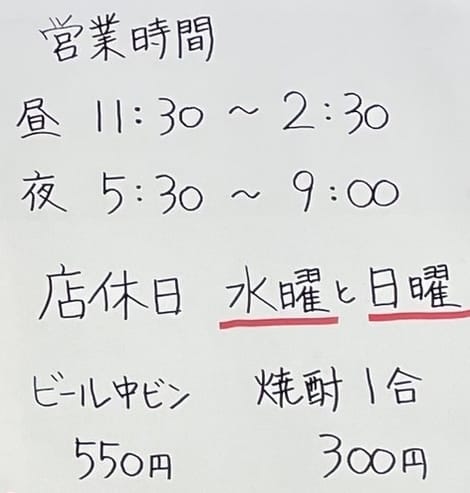 営業時間
昼 11:30 ～ 2:30
夜 5:30 ～ 9:00
店休日 水曜と日曜
ビール中ビン 焼酎1合
550円 300円